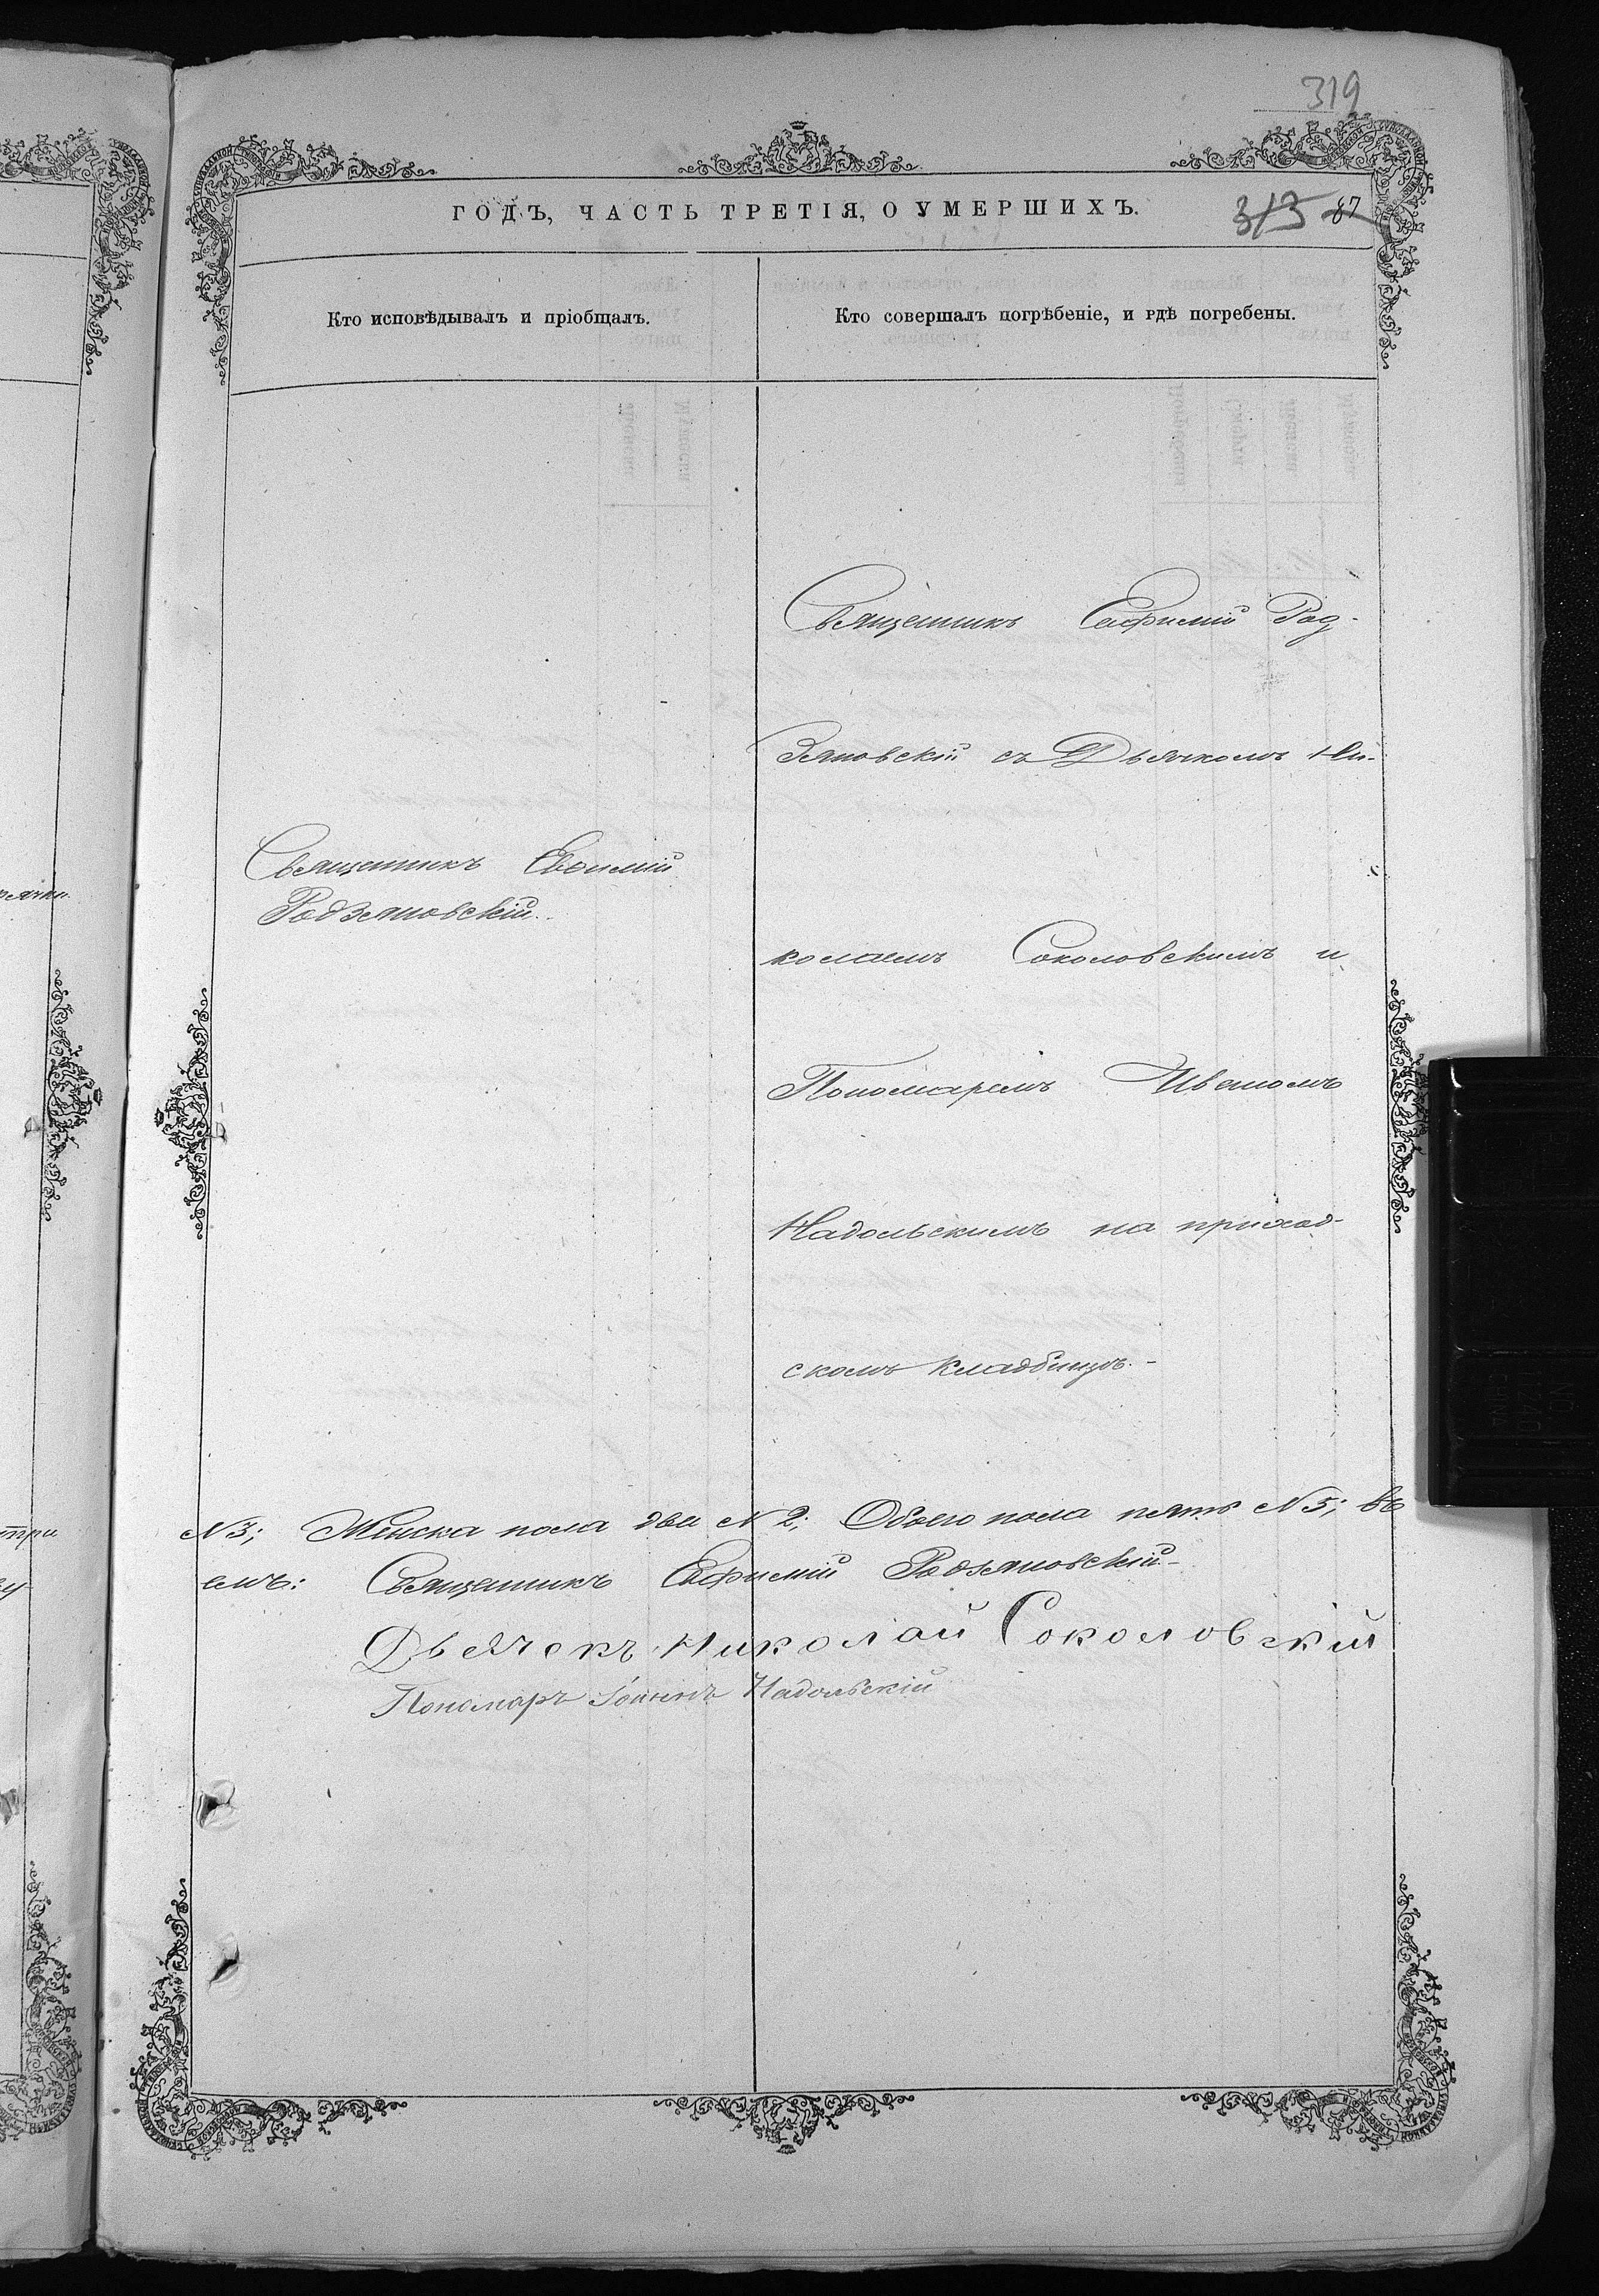 319
ГОДЪ, ЧАСТЬ ТРЕТІЯ, О УМЕРШИХЪ.
313 87
Кто исповѣдывалъ и пріобщалъ.
Кто совершалъ погрѣбеніе, и гдѣ погребены.
Священникъ Евѳимій
Родзяновскій.
Священникъ Евфимій Род-
зяновскій съ Дьячкомъ Ни-
колаемъ Соколовскимъ и
Пономаремъ Иваномъ
Надольскимъ на приход-
скомъ кладбищѣ.-
N 3; Женска пола два N 2; Обоего пола пять N 5; въ
емъ: Священникъ Евфимій Родзяновскій-
Дьячекъ Николай Соколовскій
Пономаръ Іоаннъ Надольскій
три